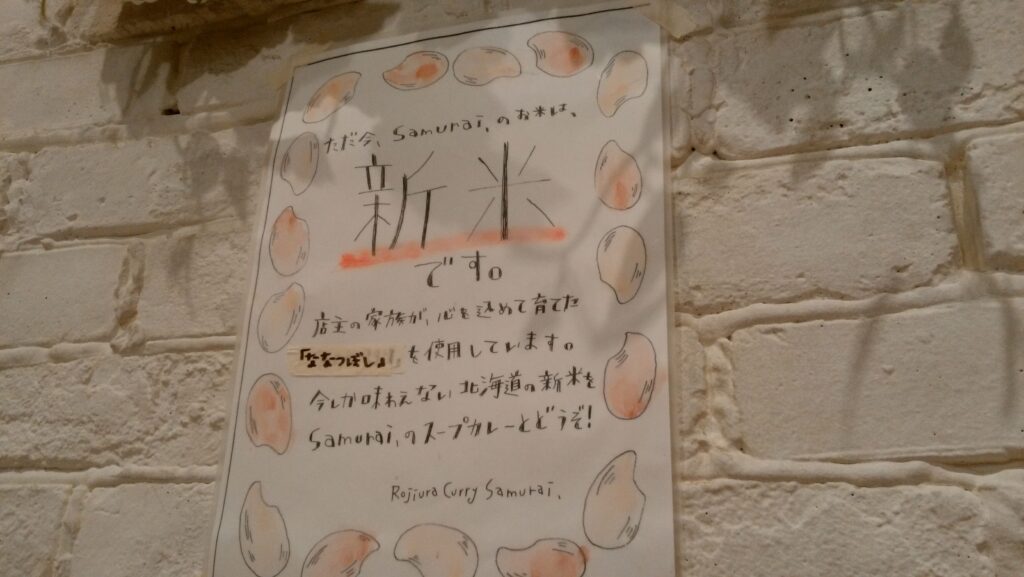 ただ今、Samurai.のお米は、
新米
です。
店主の家族が、心を込めて育てた
「ななつぼし」を使用しています。
今しか味わえない北海道の新米を
Samurai.のスープカレーとどうぞ!
Rojiura Curry Samurai.